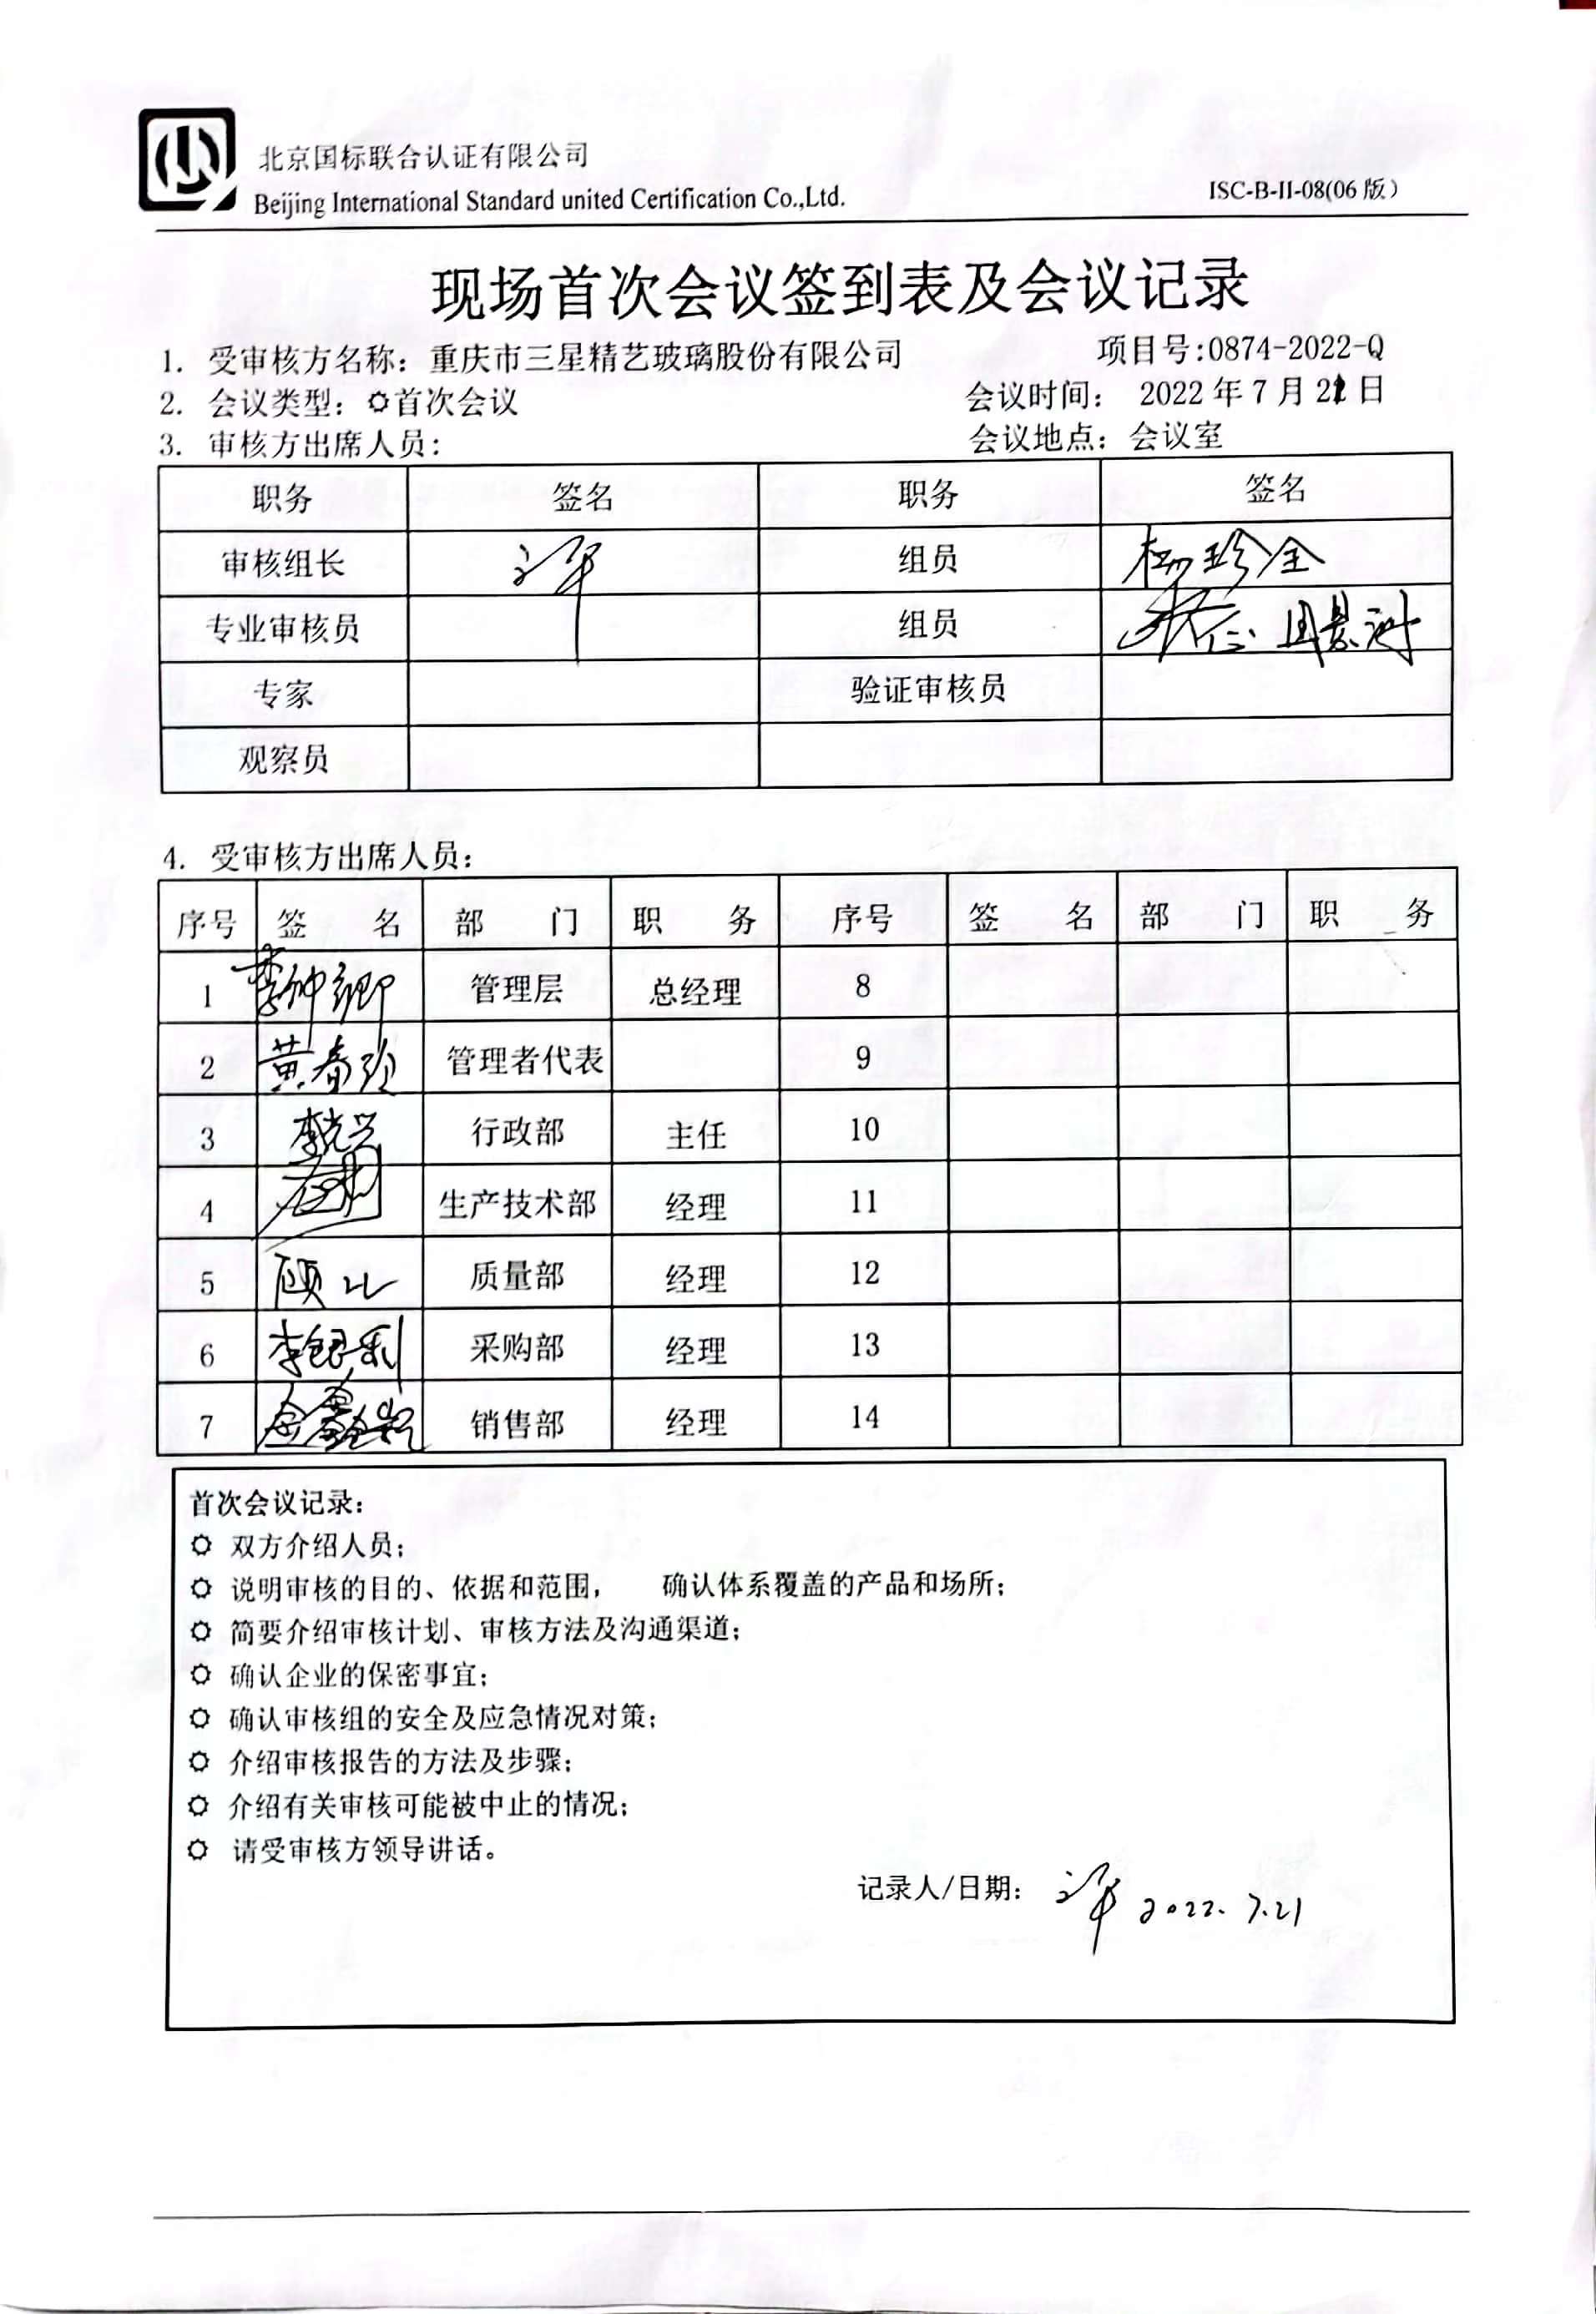 北京国标联合认证有限公司
Beijing International Standard united Certification Co.,Ltd.
ISC-B-II-08(06版)
现场首次会议签到表及会议记录
1. 受审核方名称：重庆市三星精艺玻璃股份有限公司 项目号:0874-2022-Q
2. 会议类型：首次会议 会议时间： 2022年7月21日
3. 审核方出席人员： 会议地点：会议室
职务 签名 职务 签名
审核组长 组员 杨珍全
专业审核员 组员
专家 验证审核员
观察员
4. 受审核方出席人员：
序号 签 名 部 门 职 务 序号 签 名 部 门 职 务
1 李钟卿 管理层 总经理 8
2 黄春 管理者代表 9
3 李克兴 行政部 主任 10
4 生产技术部 经理 11
5 顾 质量部 经理 12
6 李银利 采购部 经理 13
7 金鑫 销售部 经理 14
首次会议记录：
双方介绍人员；
说明审核的目的、依据和范围， 确认体系覆盖的产品和场所；
简要介绍审核计划、审核方法及沟通渠道；
确认企业的保密事宜；
确认审核组的安全及应急情况对策；
介绍审核报告的方法及步骤；
介绍有关审核可能被中止的情况；
请受审核方领导讲话。
记录人/日期： 2022.7.21